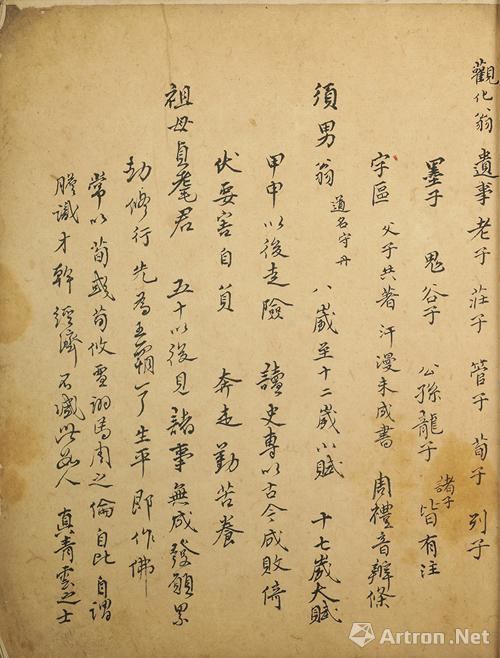 觀化翁 遺事 老子 莊子 管子 荀子 列子
墨子 鬼谷子 公孫龍子 諸子 皆有注
字區 父子共著 汗漫未成書 周禮音辨條
須男翁 道名守丹 八歲至十二歲小賦 十七歲大賦
甲申以後走險 讀史專以古今成敗倚
伏要害自負 奔走勤苦養
祖母貞耄君 五十以後見諸事無成發願累
劫修行 先為王霸了生平 即作佛
常以荀彧荀攸 馬周之倫自比 自謂
膽識才幹 經濟 不減此數人 真青雲之士
Artron.Net